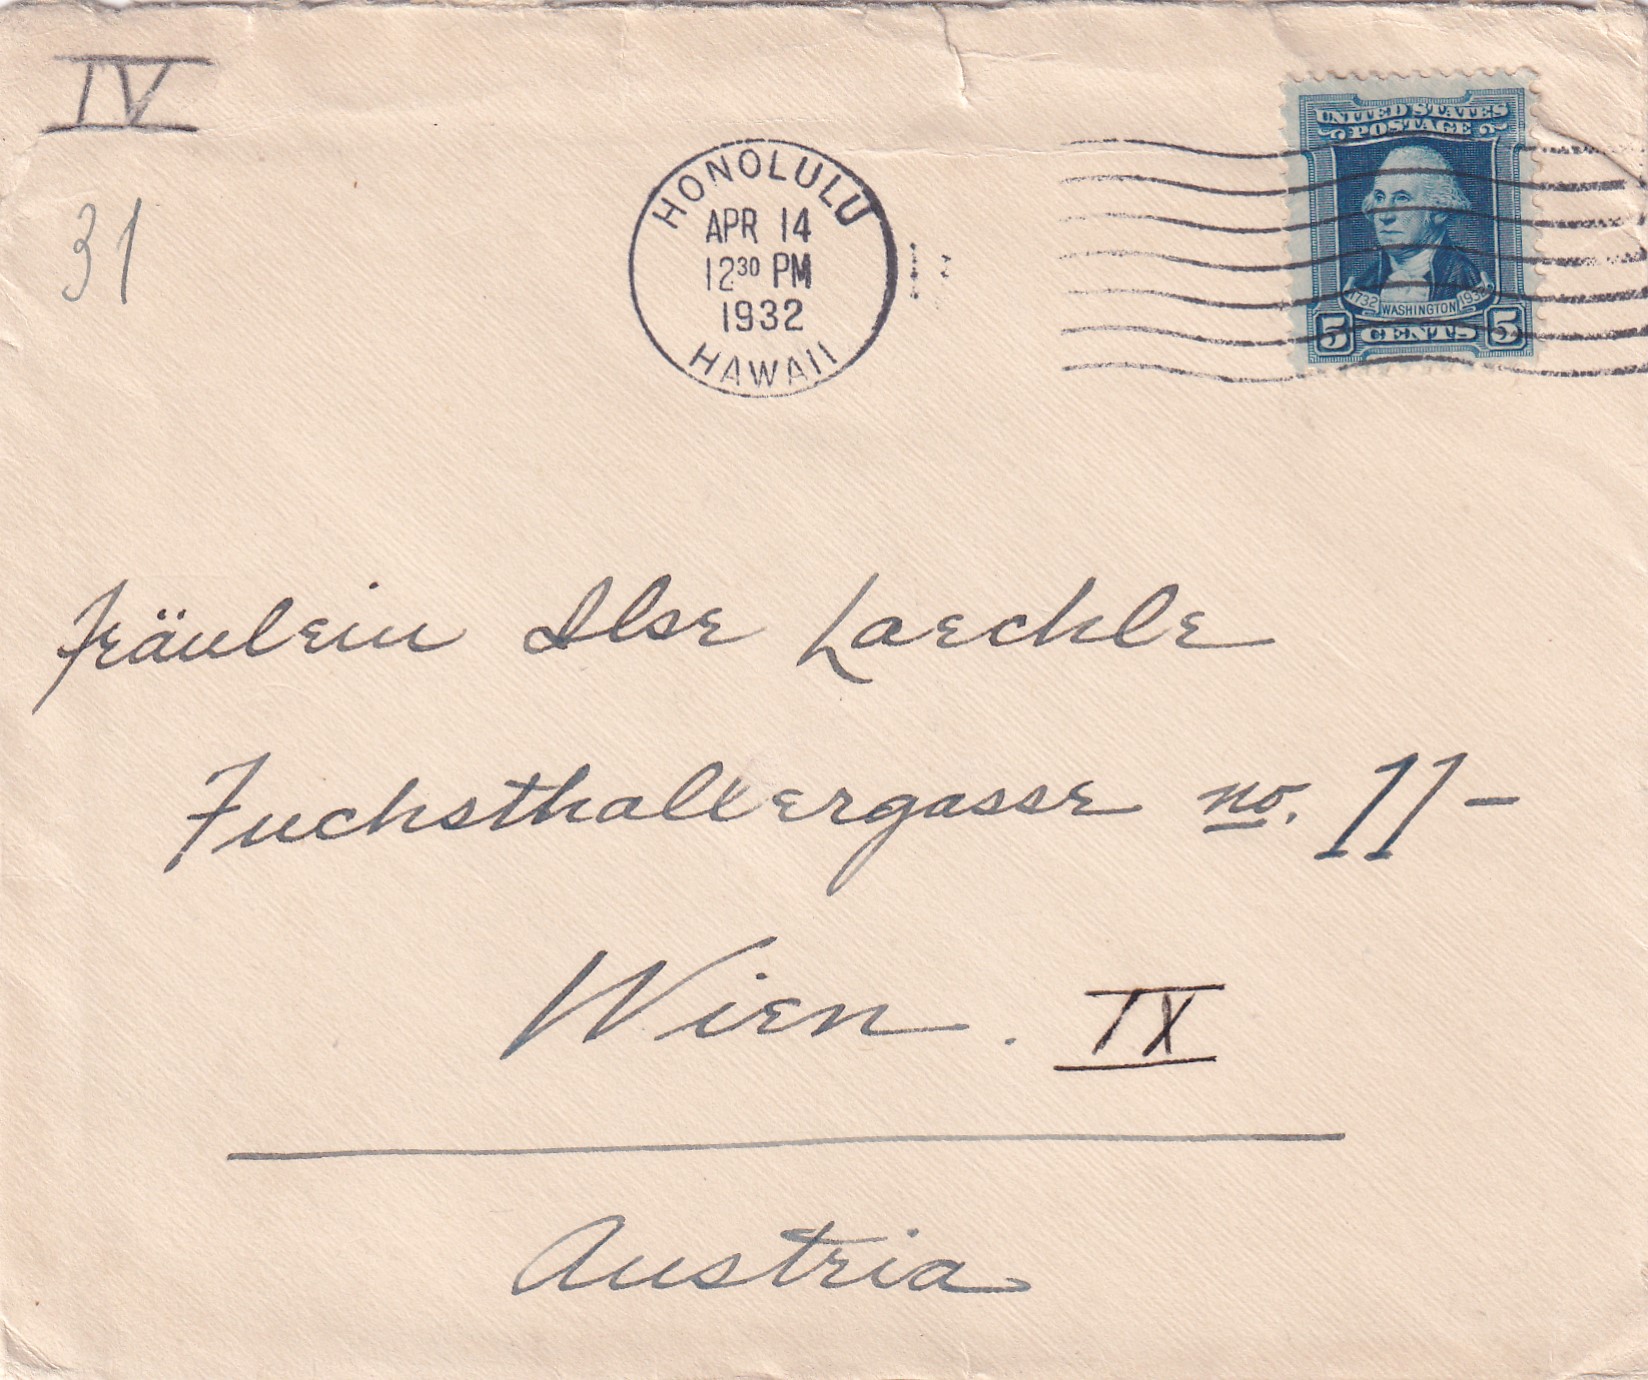 IV
31
HONOLULU
APR 14
12³⁰ PM
1932
HAWAII
UNITED STATES
POSTAGE
1732 WASHINGTON 1932
5 CENTS 5
Fräulein Ilse Laechle
Fuchsthallergasse no. 11-
Wien. IX
Austria